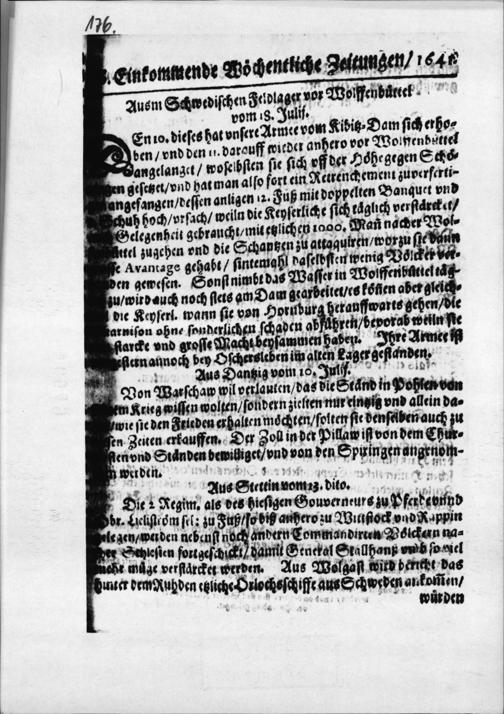 176.
. Einkommende Wöchentliche Zeitungen / 1641.
Ausm Schwedischen Feldlager vor Wolffenbüttel
vom 18. Julij.
DEn 10. dieses hat unsere Armee vom Kibitz-Dam sich erho-
ben / und den 11. darauff wieder anhero vor Wolffenbüttel
angelanget / woselbsten sie sich uff der Höhe gegen Schö-
gesetzet / und hat man also fort ein Retrenchement zuverferti-
angefangen / dessen anligen 12. Fuß mit doppelten Banquet und
Schuh hoch / ursach / weiln die Keyserliche sich täglich verstärcket /
Gelegenheit gebraucht / mit etzlichen 1000. Mañ nacher Wol-
zugehen und die Schantzen zu attaquiren / worzu sie dann
Avantage gehabt / sintemahl daselbsten wenig Völcker ver-
den gewesen. Sonst nimbt das Wasser in Wolffenbüttel täg-
zu / wird auch noch stets am Dam gearbeitet / es köñen aber gleich-
die Keyserl. wann sie von Hornburg herauffwarts gehen / die
ohne sonderlichen schaden abführen / bevorab weiln sie
starcke und grosse Macht beysammen haben. Ihre Armee ist
gestern annoch bey Oschersleben im alten Lager gestanden.
Aus Dantzig vom 10. Julij.
Von Warschaw wil verlauten / das die Ständ in Pohlen von
Krieg wissen wolten / sondern zielten nur eintzig und allein da-
/ wie sie den Frieden erhalten möchten / solten sie denselben auch zu
Zeiten erkauffen. Der Zoll in der Pillaw ist von dem Chur-
und Ständen bewilliget / und von den Spiringen angenom-
werden.
Aus Stettin vom 13. dito.
Die 2 Regim. als des hiesigen Gouverneurs zu Pferde und
Lieliström sel: zu Fuß / so biß anhero zu Wittstock und Rappin
gelegen / werden nebenst noch andern Commandirten Völckern na-
Schlesien fortgeschickt / damit General Stallhanß umb so viel
mehr müge verstärcket werden. Aus Wolgast wird bericht das
hunter dem Ruhden etzliche Orlochsschiffe aus Schweden ankom̃en /
würden